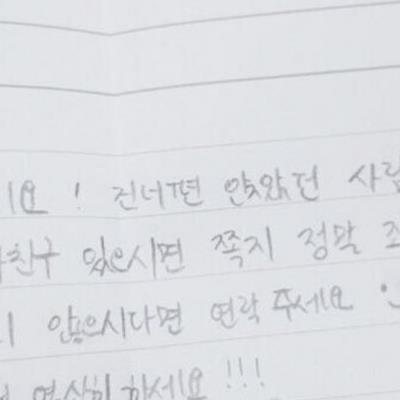 요! 건너편 앉았던 사람
친구 있으시면 쪽지 정말
않으시다면 연락 주세요
열심히 하세요!!!